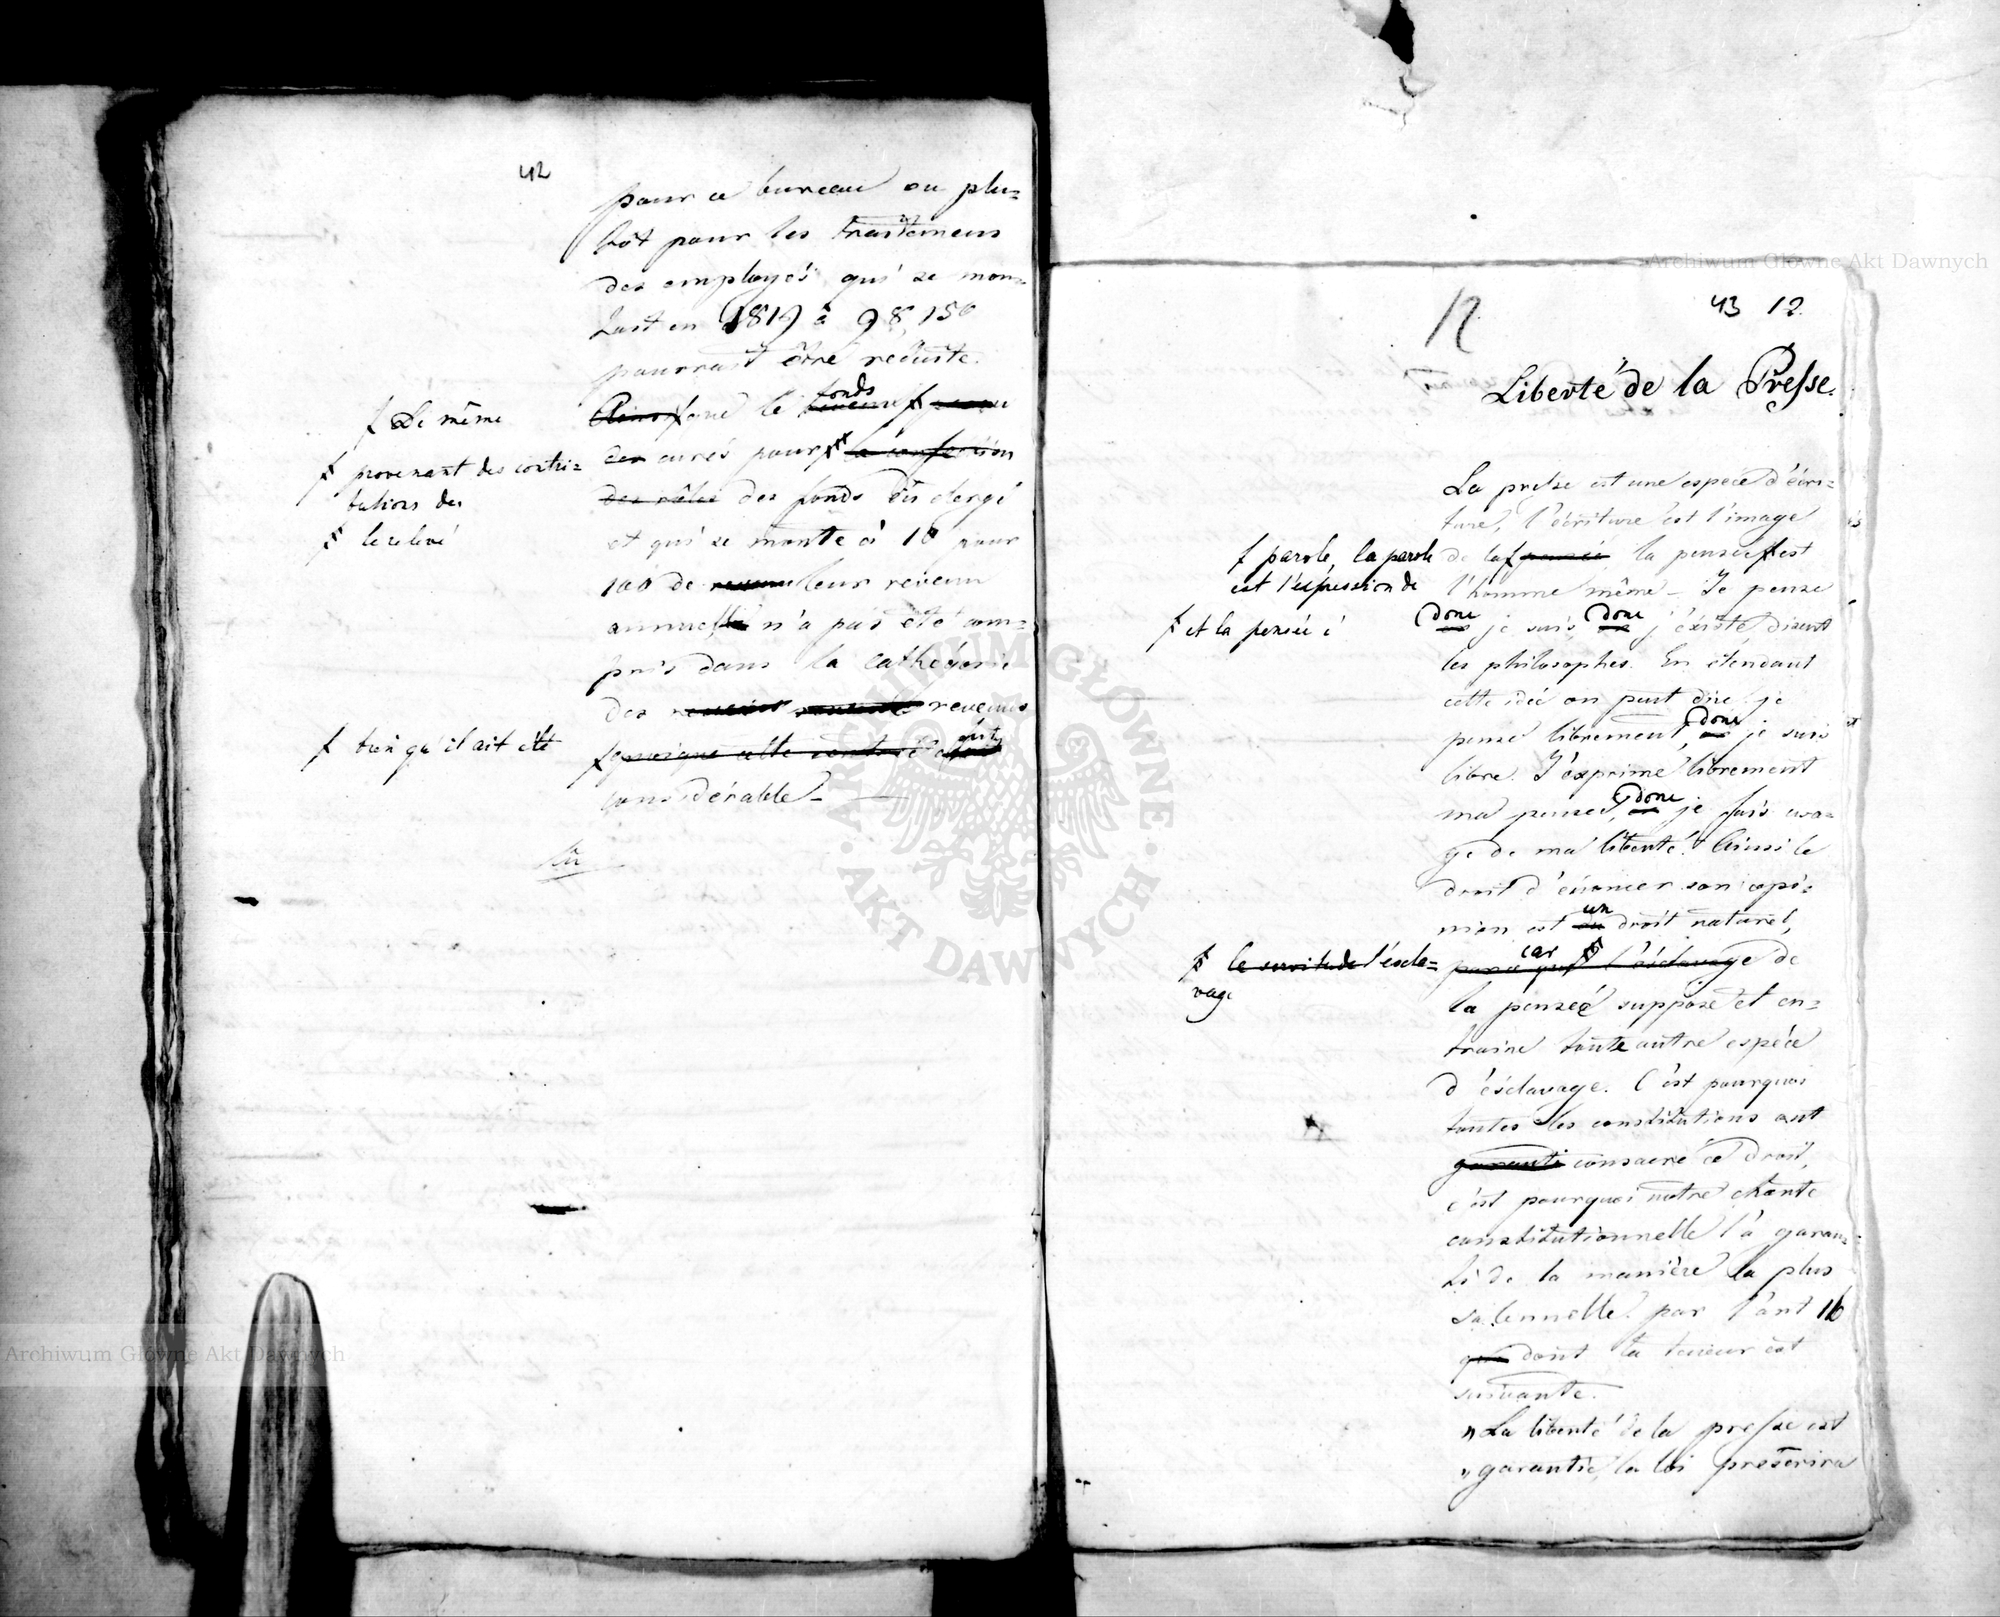 42
pour ce bureau ou plu=
tôt pour les traitemens
des employés qui se mon=
tait en 1819 à 98,150
pourrait être réduite.
Ainsi que le fonds
ƒ De même
des curés pour la confection
ƒ provenant des contri=
butions des
des rôles des fonds du clergé
ƒ le relevé
et qui se monte à 10 pour
100 de revenu leur revenu
annuel n'a pas été com=
pris dans la cathégorie
des revenus
ƒ bien qu'il ait été
quoique cette
considérable –
Archiwum Główne Akt Dawnych
12
43 12.
Liberté de la Presse.
La presse est une espèce d'écri=
ture, l'écriture est l'image
ƒ parole, la parole
est l'expression de
de la ƒ pensée la pensée ƒ est
l'homme même – Je pense
ƒ et la pensée è
donc je suis, donc j'éxiste disent
les philosophes. En étendant
cette idée on peut dire je
pense librement, donc je suis
libre. J'exprime librement
ma pensée, donc je fais usa=
ge de ma liberté. Ainsi le
droit d'énoncer son opi=
nion est un droit naturel,
ƒ le servitude l'escla=
vage
parce que car ƒ l'ésclavage de
la pensée suppose et en=
traine toute autre espèce
d'ésclavage. C'est pourquoi
toutes les constitutions ont
garanti consacré ce droit,
c'est pourquoi notre charte
constitutionnelle l'a garan=
ti de la manière la plus
solennelle par l'art 16
que dont la teneur est
suivante.
"La liberté de la presse est
"garantie, la loi préscrira
Archiwum Główne Akt Dawnych
ARCHIWUM GŁÓWNE · AKT DAWNYCH ·